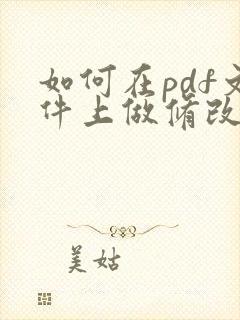 如何在pdf文
件上做修改
美姑